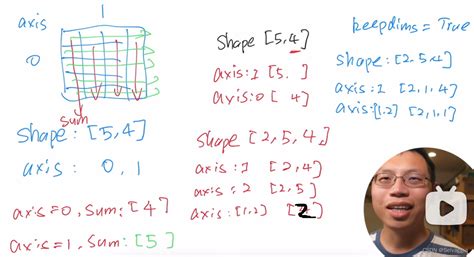 axis 1
0
sum
shape: [5,4]
axis: 0, 1
axis=0, sum: [4]
axis=1, sum: [5]
shape [5,4]
axis:1 [5, ]
axis:0 [ 4]
shape [2,5,4]
axis:1 [2,4]
axis:2 [2,5]
axis:[1,2] [2]
keepdims=True
shape:[2,5,4]
axis:1 [2,1,4]
axis:[1,2] [2,1,1]